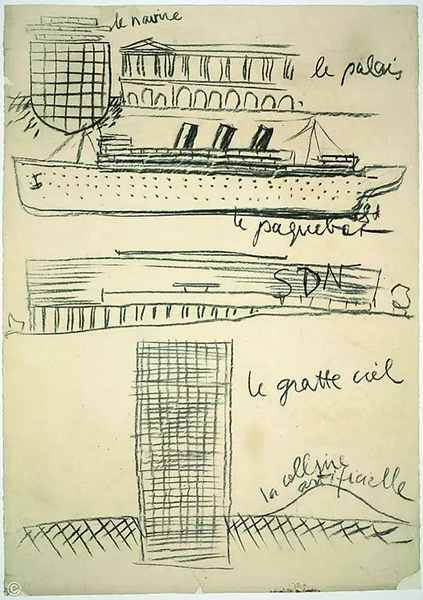 le navire
le palais
le paquebot
SDN
le gratte ciel
la colline
artificielle
©